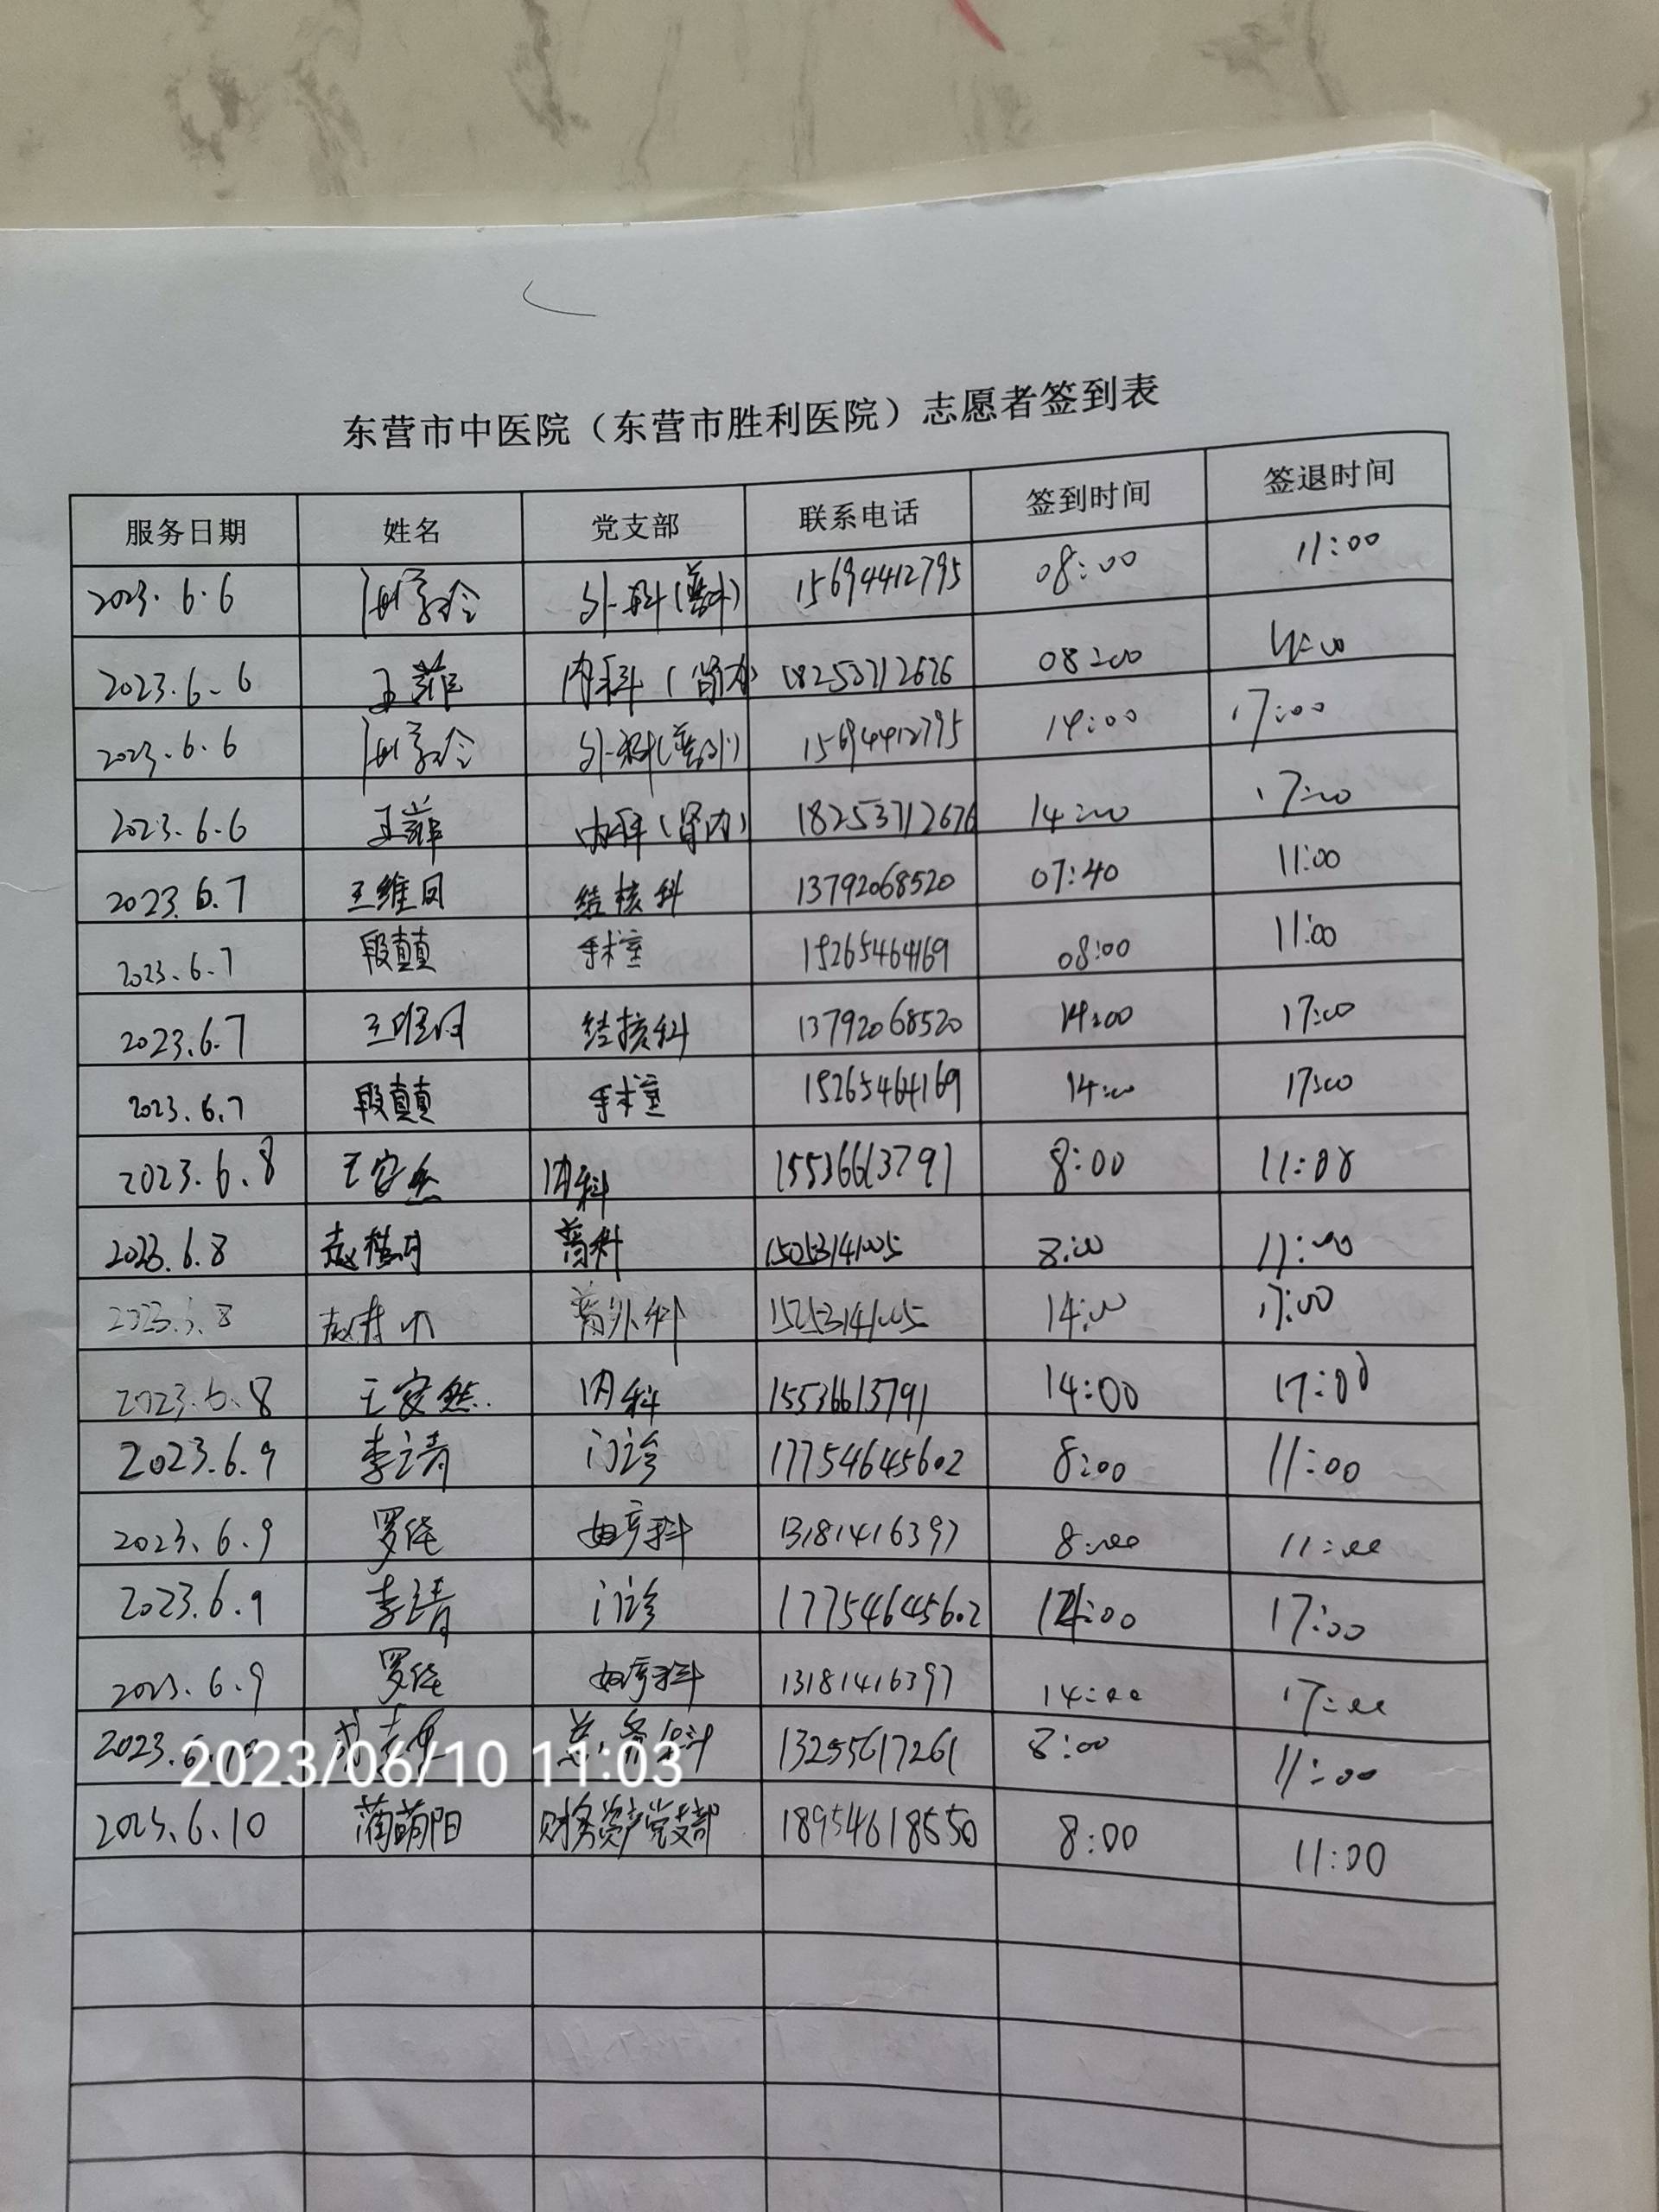 东营市中医院（东营市胜利医院）志愿者签到表
服务日期 姓名 党支部 联系电话 签到时间 签退时间
2023.6.6 外科(普外) 15694412795 08:00 11:00
2023.6.6 王菲 内科(肾内) 18253712676 08:00 11:00
2023.6.6 外科(普外) 15694412795 14:00 17:00
2023.6.6 王菲 内科(肾内) 18253712676 14:00 17:00
2023.6.7 王维同 结核科 13792068520 07:40 11:00
2023.6.7 段真真 手术室 15265464169 08:00 11:00
2023.6.7 结核科 13792068520 14:00 17:00
2023.6.7 段真真 手术室 15265464169 14:00 17:00
2023.6.8 王安然 内科 15536613791 8:00 11:00
2023.6.8 普科 8:00 11:00
2023.6.8 普外科 14:00 17:00
2023.6.8 王安然 内科 15536613791 14:00 17:00
2023.6.9 李立青 门诊 17754645602 8:00 11:00
2023.6.9 罗佳 妇产科 13181416397 8:00 11:00
2023.6.9 门诊 17754645602 14:00 17:00
2023.6.9 罗佳 妇产科 13181416397 14:00 17:00
2023.6.10 总务科 13255617261 8:00 11:00
2023/06/10 11:03
2023.6.10 蔺萌阳 财务资产党支部 18954618550 8:00 11:00